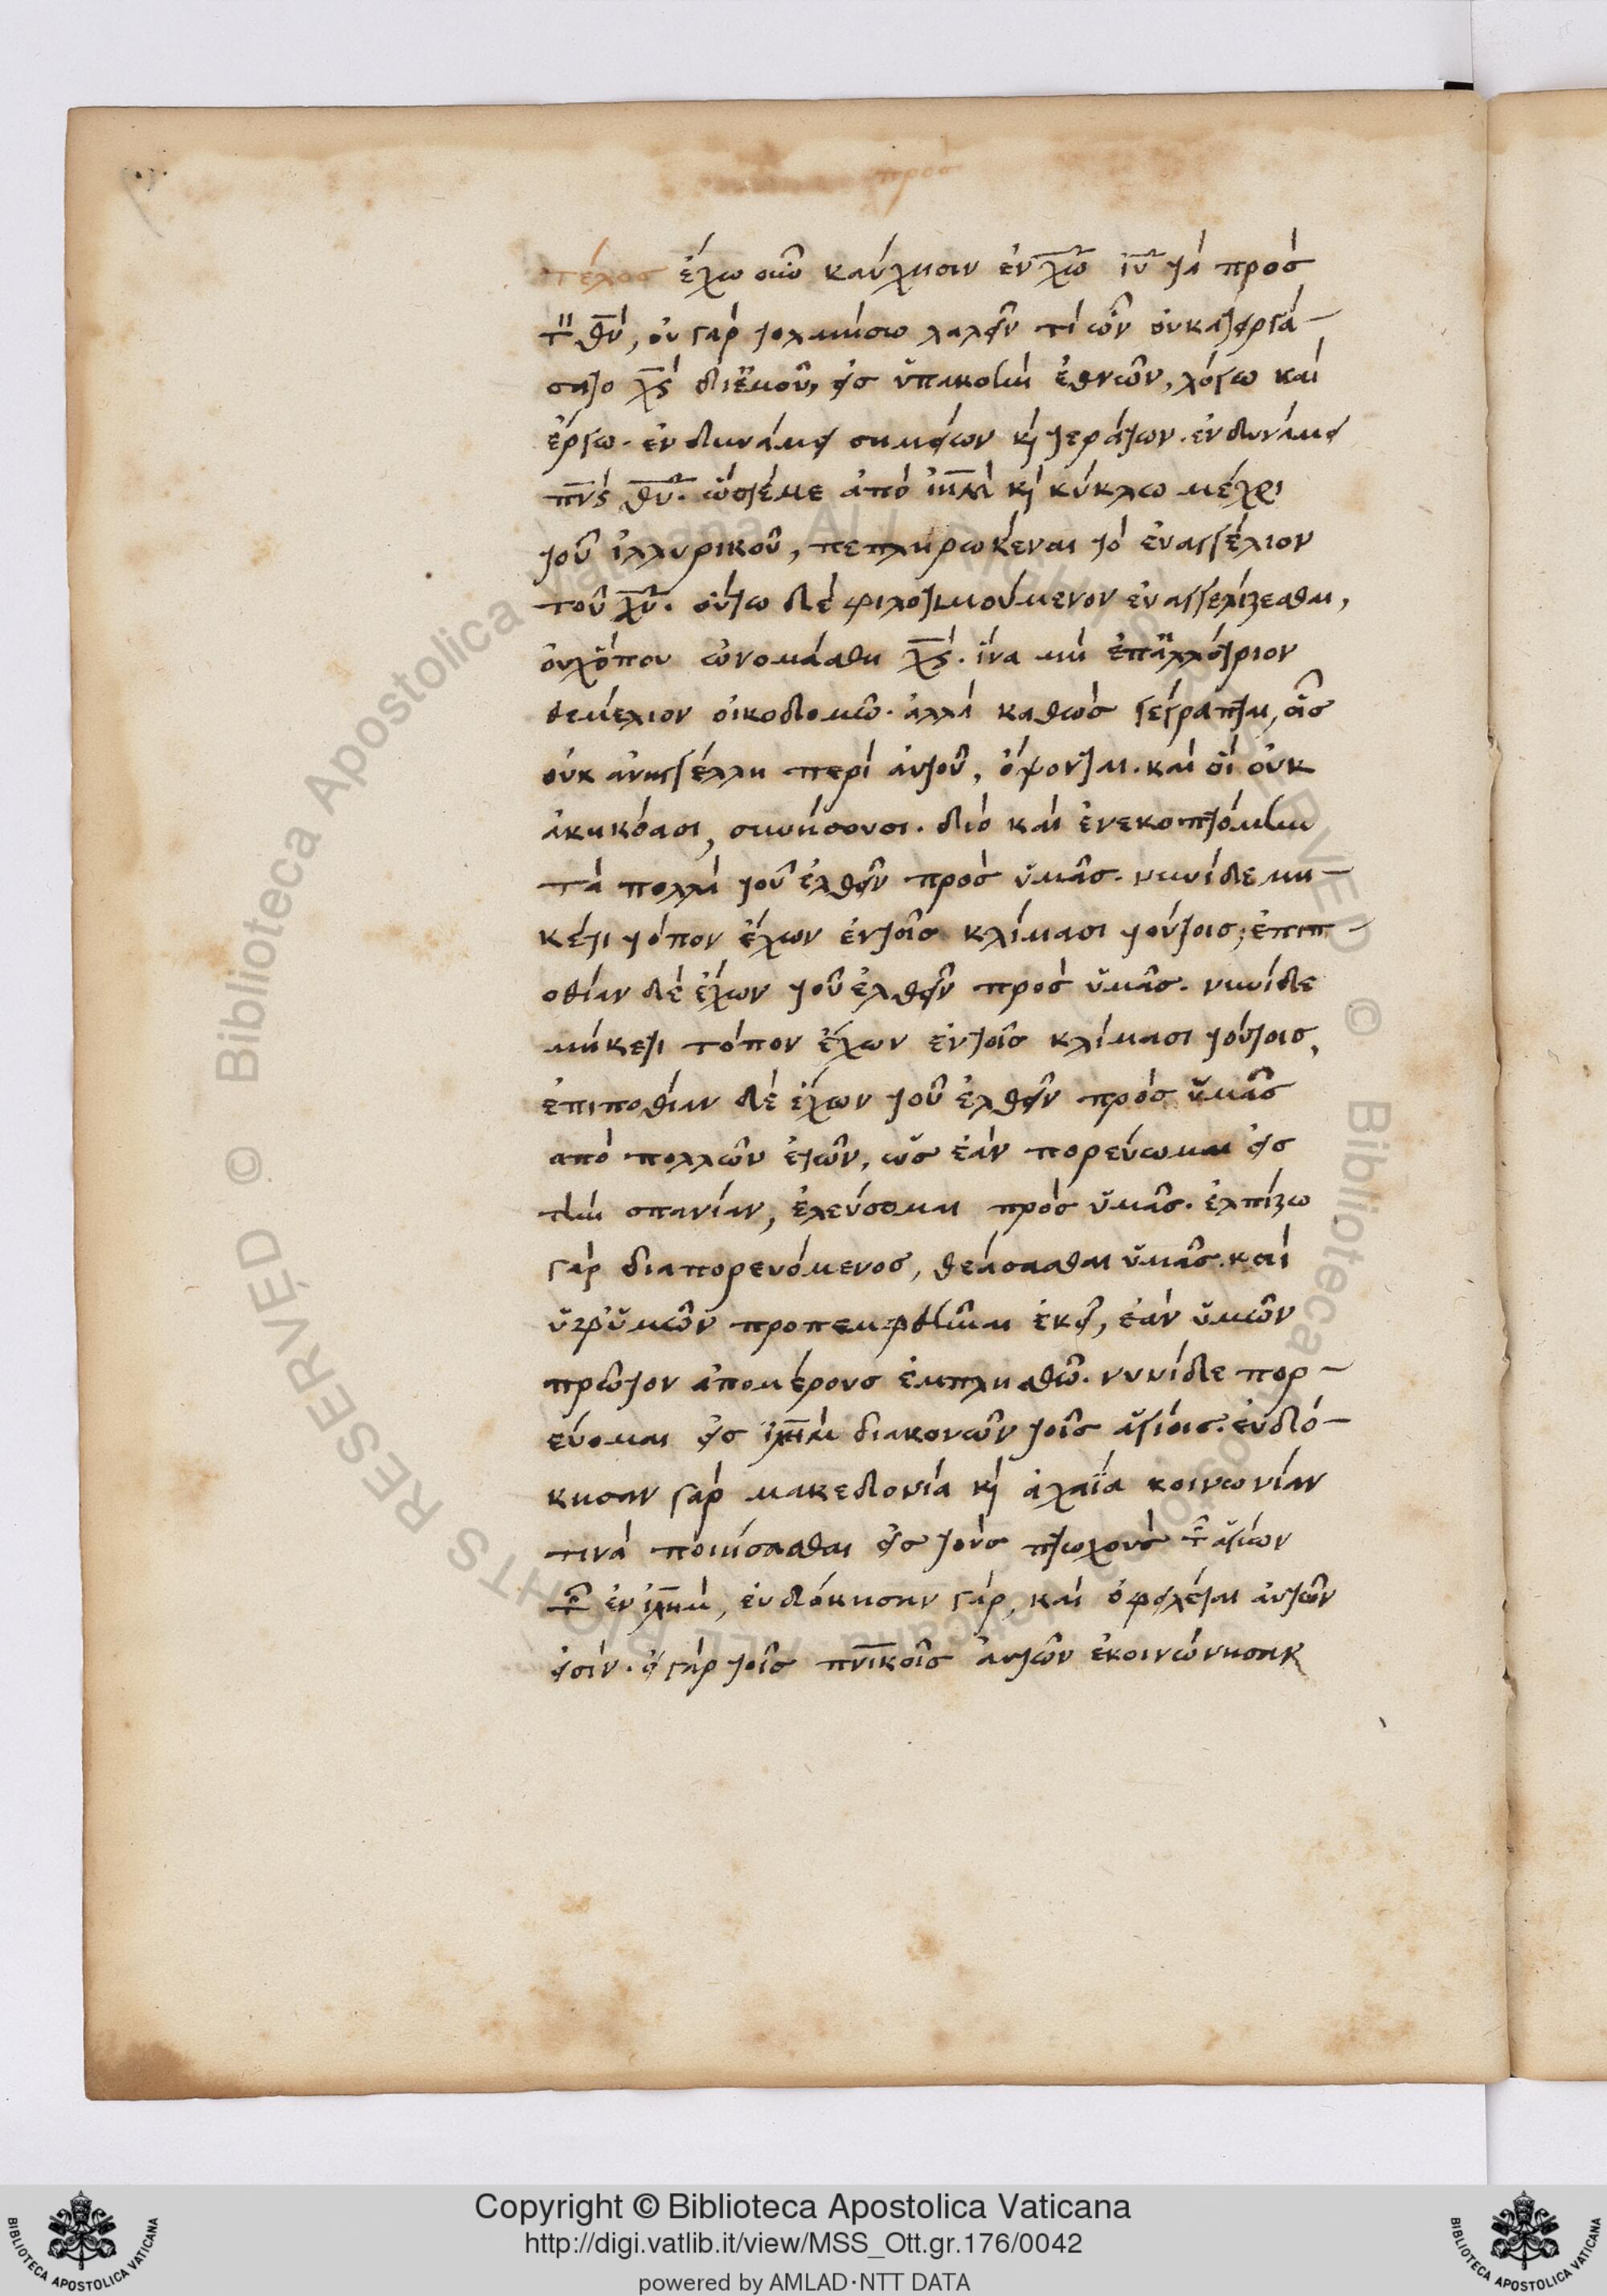 προσ
τέλος ἔχω οὖν καύχησιν ἐν χ̅ω̅ ι̅υ̅ τὰ πρὸς
τὸν θ̅ν̅, οὐ γὰρ τολμήσω λαλεῖν τί ὧν οὐκατειργά-
σατο χ̅ς̅ διἐμοῦ, εἰς ὑπακοὴν ἐθνῶν, λόγω καὶ
ἔργω. ἐν δυνάμει σημείων κ̀ τεράτων. ἐν δυνάμει
π̅ν̅ς̅ θ̅υ̅. ὥστέμε ἀπὸ ι̅η̅λ̅μ̅ κ̀ κύκλω μέχρι
τοῦ ἰλλυρικοῦ, πεπληρωκέναι τὸ ἐυαγγέλιον
τοῦ χ̅υ̅. οὕτω δὲ φιλοτιμούμενον ἐυαγγελίζεσθαι,
οὐχὅπου ὠνομάσθη χ̅ς̅. ἵνα μὴ ἐπἀλλότριον
θεμέλιον οἰκοδομῶ. ἀλλὰ καθὼς γέγραπται, οἷς
οὐκ ἀνηγγέλλη περὶ ἀυτοῦ, ὄψονται. καὶ οἳ οὐκ
ἀκηκόασι, συνήσουσι. διὸ καὶ ἐνεκοπτόμην
τὰ πολλὰ τοῦ ἐλθεῖν πρὸς ὑμᾶς. νυνίδε μη-
κέτι τόπον ἔχων ἐντοῖς κλίμασι τούτοις, ἐπιπ-
οθίαν δὲ ἔχων τοῦ ἐλθεῖν πρὸς ὑμᾶς. νυνίδε
μήκετι τόπον ἔχων ἐντοῖς κλίμασι τούτοις,
ἐπιποθίαν δὲ ἔχων τοῦ ἐλθεῖν πρὸς ὑμᾶς
ἀπὸ πολλῶν ἐτῶν, ὡς ἐὰν πορεύωμαι εἰς
τὴν σπανίαν, ἐλεύσομαι πρὸς ὑμᾶς. ἐλπίζω
γὰρ διαπορευόμενος, θεάσασθαι ὑμᾶς. καὶ
ὑφ'ὑμῶν προπεμφθῆναι ἐκεῖ, ἐὰν ὑμῶν
πρῶτον ἀπομέρους ἐμπλησθῶ. νυνίδε πορ-
εύομαι εἰς ι̅λ̅η̅μ̅ διακονῶν τοῖς ἁγίοις. ἐυδό-
κησαν γὰρ μακεδονία κ̀ ἀχαΐα κοινωνίαν
τινὰ ποιήσασθαι εἰς τοὺς πτωχοὺς τῶν ἁγίων
τῶν ἐν ι̅λ̅η̅μ̅, ἐυδόκησαν γὰρ, καὶ ὀφειλέται ἀυτῶν
εἰσίν. εἰ γὰρ τοῖς π̅ν̅ικοῖς ἀυτῶν ἐκοινώνησαν
Copyright © Biblioteca Apostolica Vaticana
http://digi.vatlib.it/view/MSS_Ott.gr.176/0042
powered by AMLAD·NTT DATA